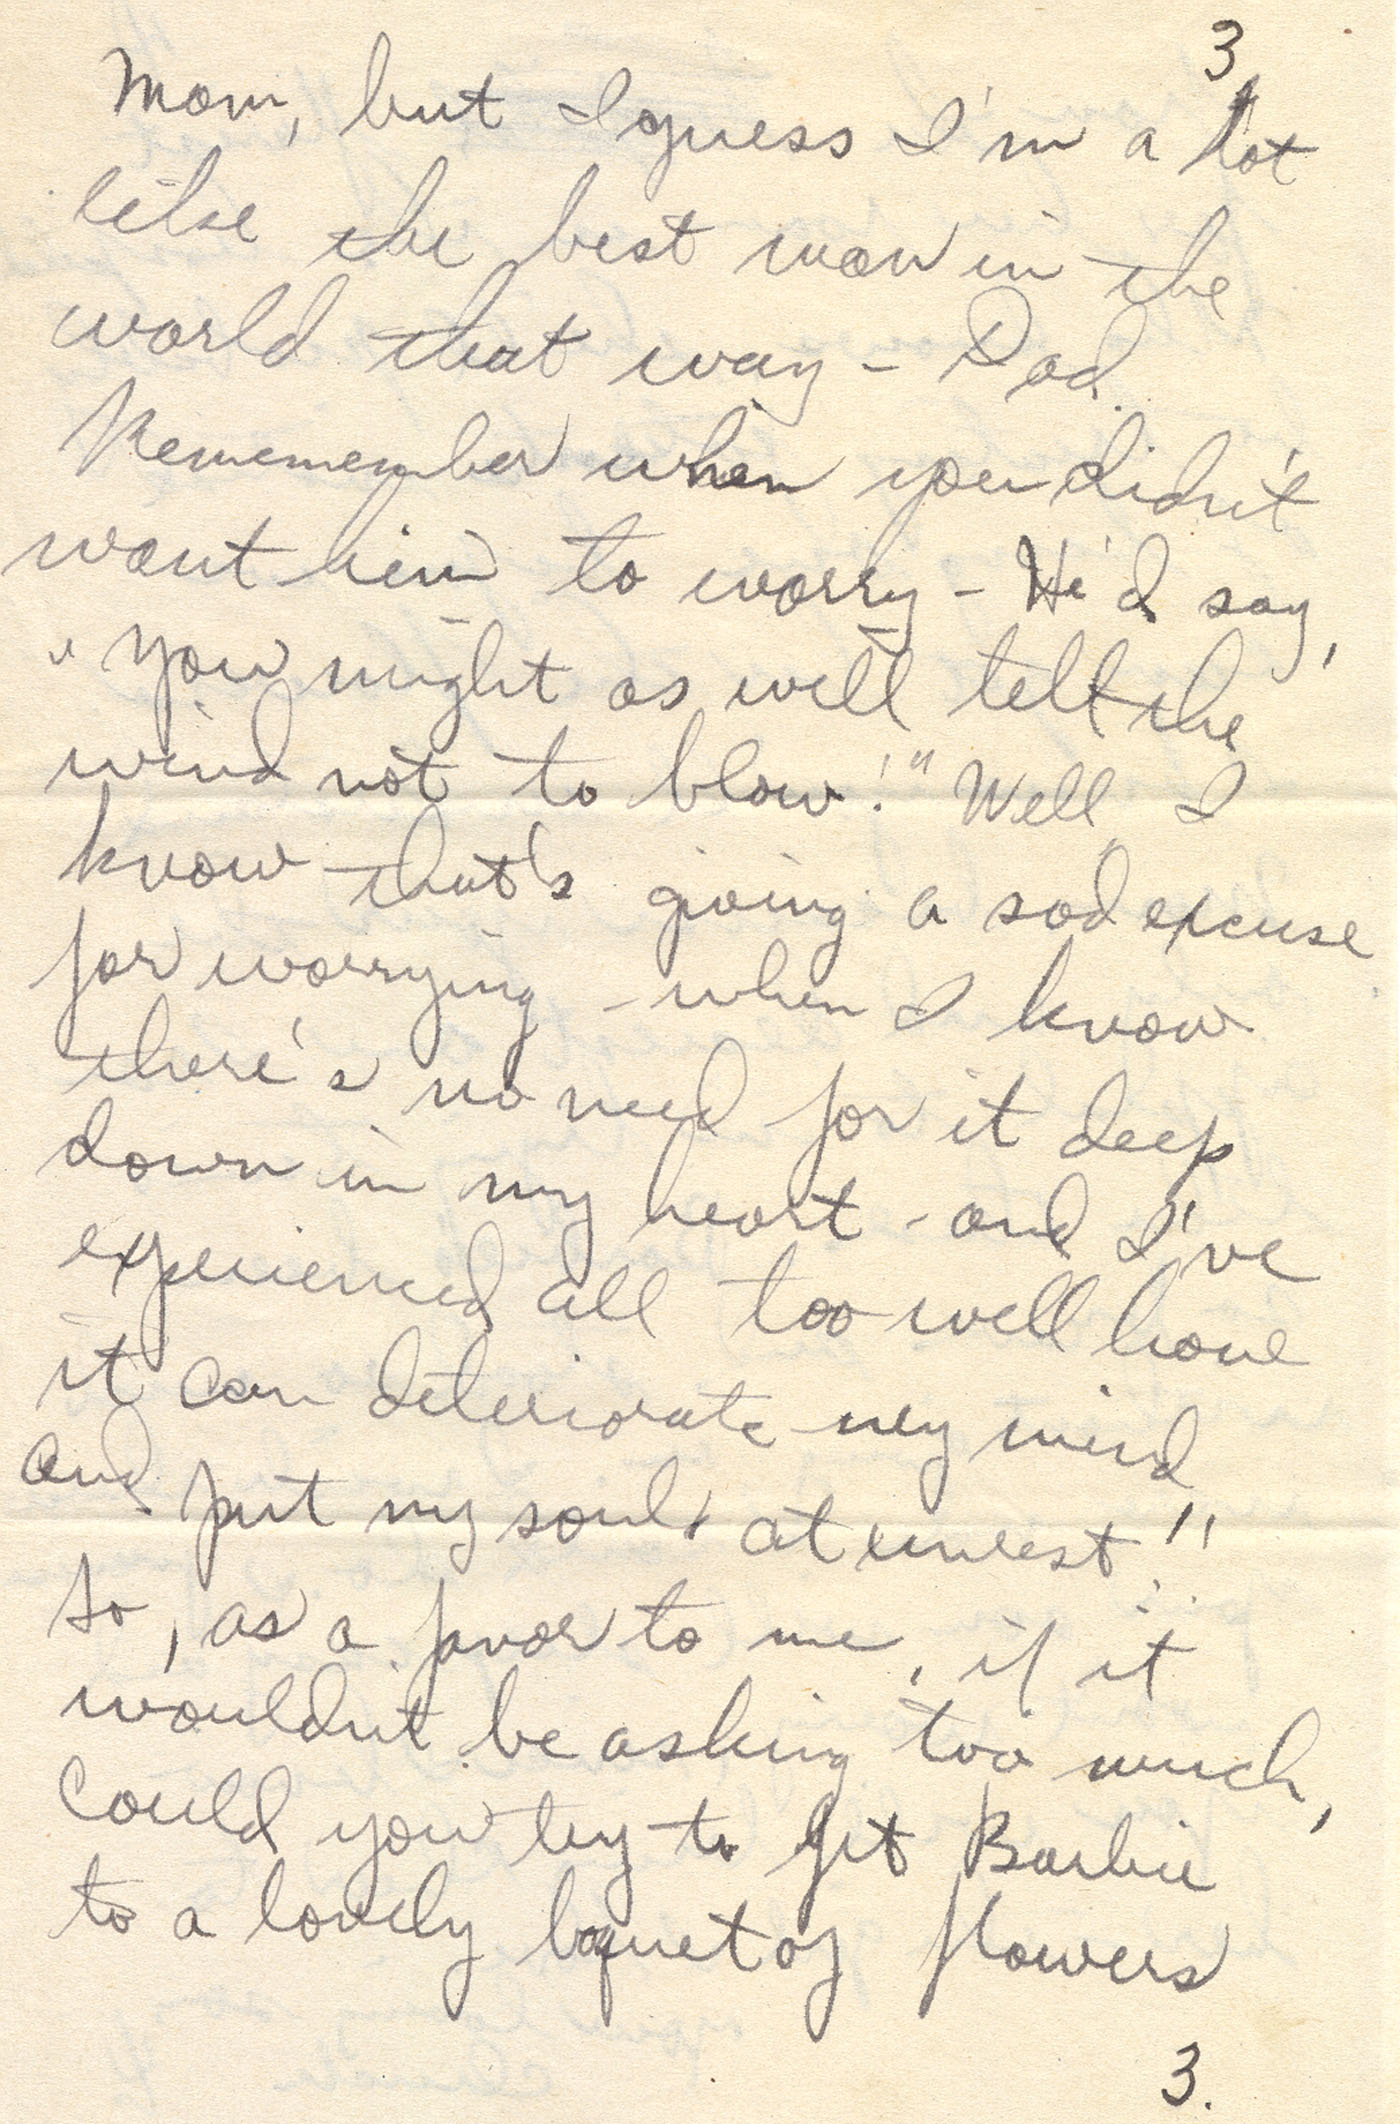 3
Mom, but I guess I'm a lot
like the best man in the
world that way - Dad.
Rememember when you didn't
want him to worry - He'd say,
"You might as well tell the
wind not to blow!" Well, I
know that's giving a sad excuse
for worrying - when I know
there's no need for it deep
down in my heart - and I've
experienced all too well how
it can deteriorate my mind
and put my soul at unrest!!
So, as a favor to me, if it
wouldn't be asking too much,
could you try to get Barbie
to a lovely boquet of flowers
3.